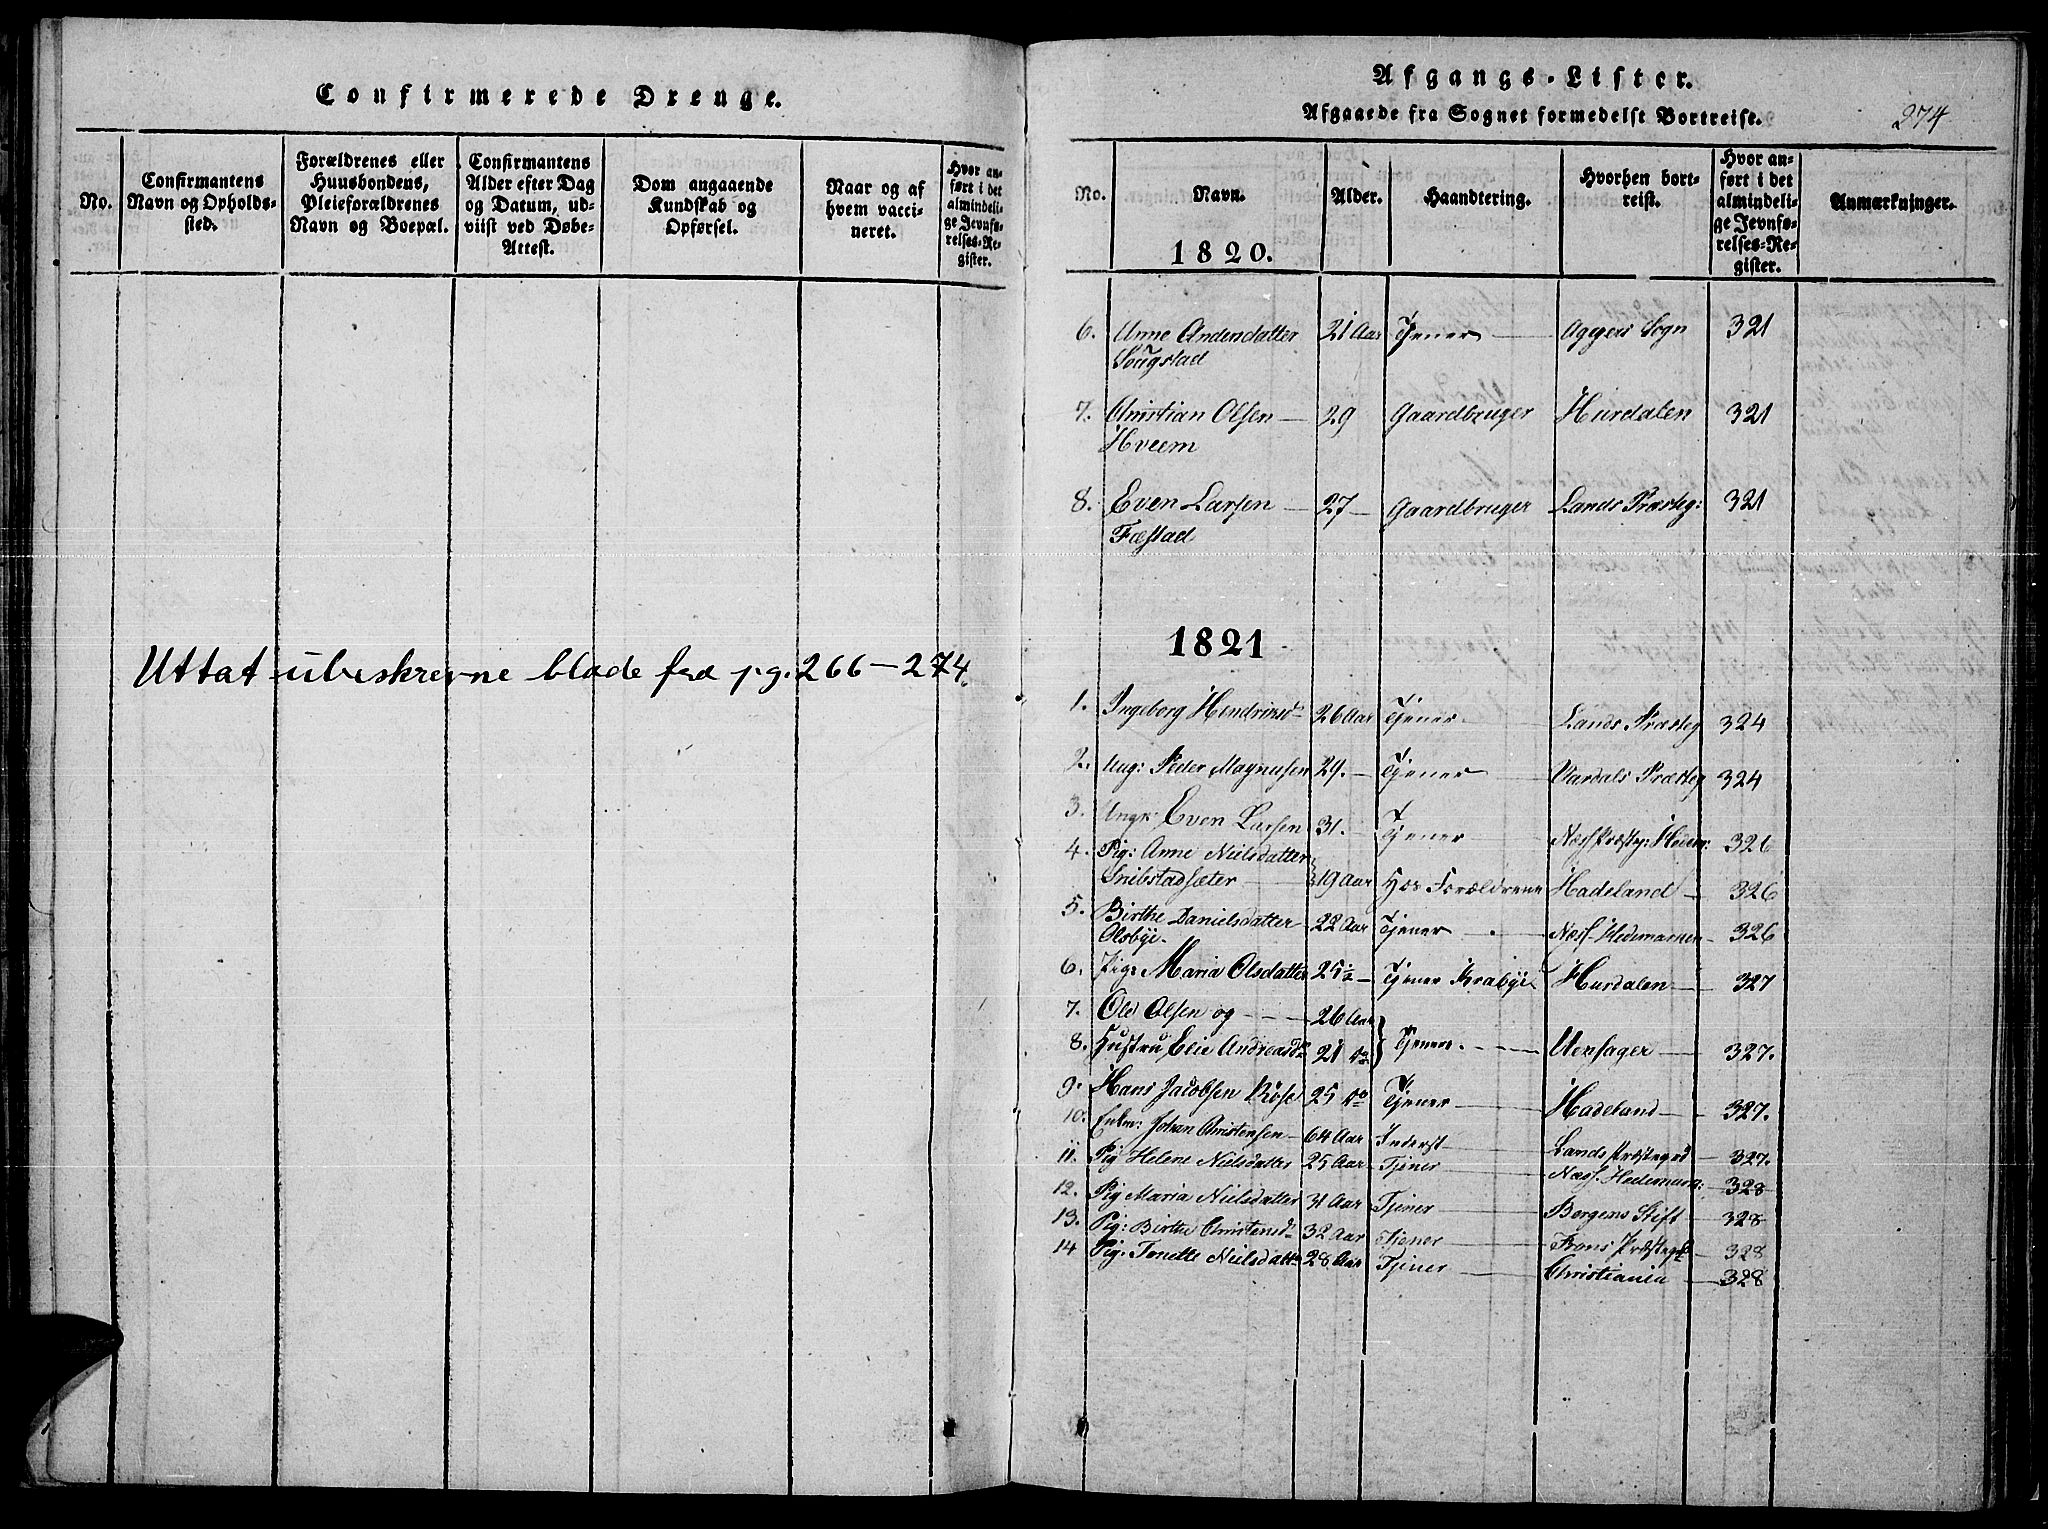 Confirmerede Drenge.
No.
Confirmantens
Navn og Opholds-
sted.
Forældrenes eller
Huusbondens,
Pleieforældrenes
Navn og Boepæl.
Confirmantens
Alder efter Dag
og Datum, ud-
viist ved Døbe-
Attest.
Dom angaaende
Kundskab og
Opførsel.
Naar og af
hvem vacci-
neret.
Hvor an-
ført i det
almindeli-
ge Jevnfø-
relses-Re-
gister.
Uttat ubeskrevne blade fra pg. 266–274.
Afgangs-Lister.
Afgaaede fra Sognet formedelst Bortreise.
274
No.
Navn.
Alder.
Haandtering.
Hvorhen bort-
reist.
Hvor an-
ført i det
almindeli-
ge Jevnfø-
relses-Re-
gister.
Anmærkninger.
1820.
6. Anne Andersdatter 21 Aar Tjener Aggers Sogn 321
7. Christian Olsen 29 Gaardbruger Hurdalen 321
Hveem
8. Even Larsen 27 Gaardbruger Lands Præsteg: 321
Fæstad
1821
1. Ingeborg Hendriksd 26 Aar Tjener Lands Præsteg 324
2. Ung: Peder Magnusen 29. Tjener Vardals Præsteg 324
3. Ungk: Even Larsen 31. Tjener Næss Præsteg: Hedem: 326
4. Pig: Anne Nielsdatter
Snibstadsæter 19 Aar Hos Forældrene Hadeland 326
5. Birthe Danielsdatter 22 Aar Tjener Næss Hedemarken 326
Olsbye.
6. Pig: Maria Olsdatter 25½ Tjener Krabye Hurdalen 327
7. Ole Olsen og 26 Aar
8. Hustru Elie Andreasdr 21 do Tjener Uensager 327.
9. Hans Jacobsen Røse 25 do Tjener Hadeland 327.
10. Enkm: Johan Christensen 64 Aar Inderst Lands Præstegd 327.
11. Pig Helene Nielsdatter 25 Aar Tjener Næss. Hedemark: 328
12. Pig Maria Nielsdatter 31 Aar Tjener Bergens Stift 328
13. Pig: Birthe Christensd 32 Aar Tjener Frons Præstegd 328
14 Pig. Tonette Nielsdattr 28 Aar Tjener Christiania 328